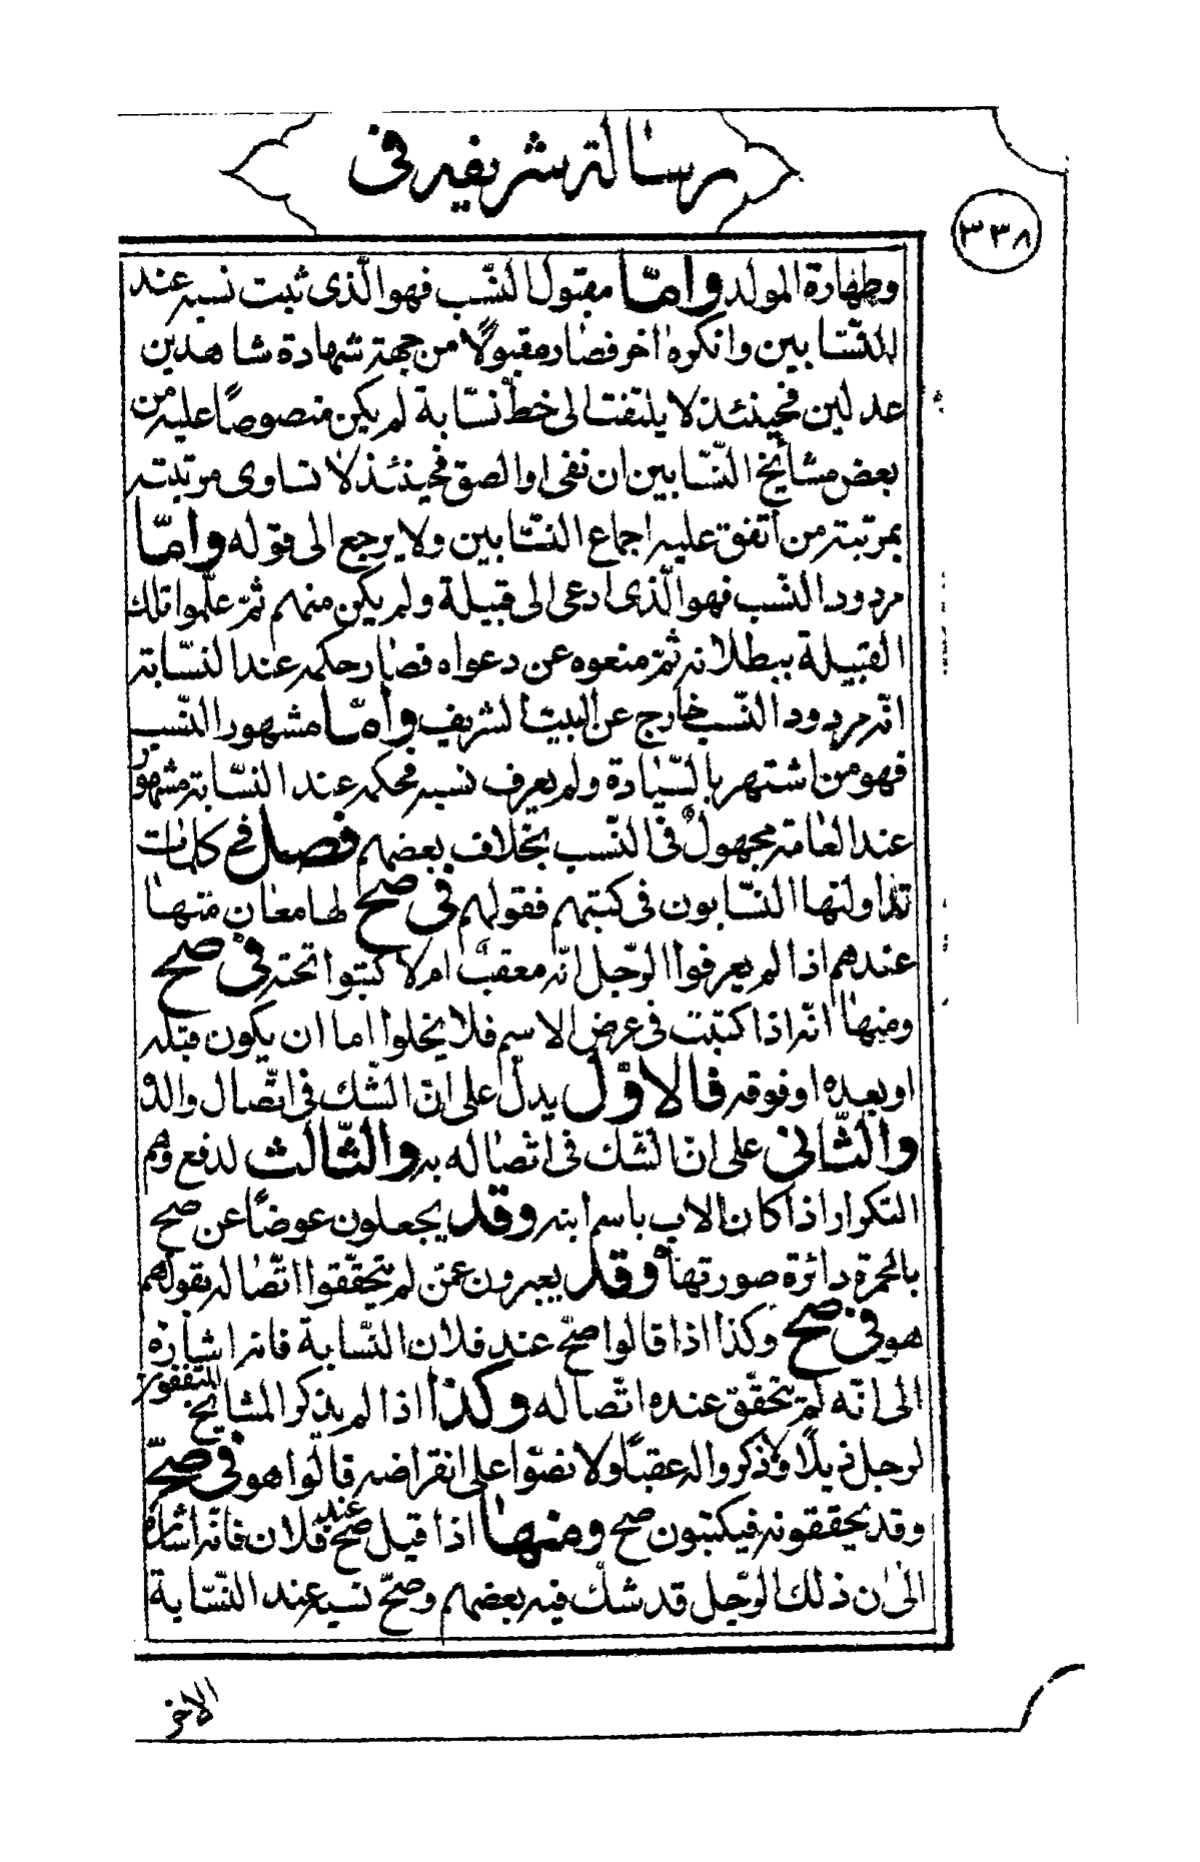 رسالة شريفه فى
٣٣٨
وطهارة المولد وامّا مقبول النسّب فهو الّذى ثبت نسبه عند
النسّابين وانكره اخر فصار مقبولًا من جهة شهادة شاهدين
عدلين فحينئذ لا يلتفت الى خطّ نسّابة لم يكن منصوصًا عليه من
بعض مشايخ النسّابين ان نفى او الصق فحينئذ لا تساوى مرتبته
بمرتبة من اتفق عليه اجماع النسّابين ولا يرجع الى قوله وامّا
مردود النسب فهو الّذى ادعى الى قبيلة ولم يكن منهم ثمّ علّموا تلك
القبيلة ببطلانه ثمّ منعوه عن دعواه فصار حكمه عند النسّابة
انّه مردود النسّب خارج عن البيت الشريف وامّا مشهور النسّب
فهو من اشتهر بالسّيادة ولم يعرف نسبه فحكمه عند النسّابة مشهور
عند العامة مجهولٌ فى النسّب بخلاف بعضهم فصل فى كلمات
تداولتها النسّابون فى كتبهم فقولهم فى صح لها معان منها
عندهم اذا لم يعرفوا الرّجل انّه معقبٌ ام لا كتبوا تحته فى صح
ومنها انّه اذا كتبت فى عرض الاسم فلا يخلوا اما ان يكون قبله
او بعده او فوقه فالاوّل يدلّ على انّ الشّك فى اتّصال والده
والثّانى على انّ الشّك فى اتصاله به والثّالث لدفع وهم
التكرار اذا كان الاب باسم ابنه وقد يجعلون عوضًا عن صح
بالحمرة دائرة صورتها ه وقد يعبرون عمّن لم يتحقّقوا اتّصاله بقولهم
هو فى صح وكذا اذا قالوا صحّ عند فلان النسّابة فانه اشارة
الى انّه لم يتحقّق عنده اتّصاله وكذا اذا لم يذكر المشايخ المتفقون
لرجل ذيلًا ولا ذكروا له عقبًا ولا نصّوا على انقراضه قالوا هو فى صحّ
وقد يحققونه فيكتبون صح ومنها اذا قيل صحّ عند فلان فانّه اشارة
الى ان ذلك الرّجل قد شك فيه بعضهم وصحّ نسبه عند النسّابة
الاخر